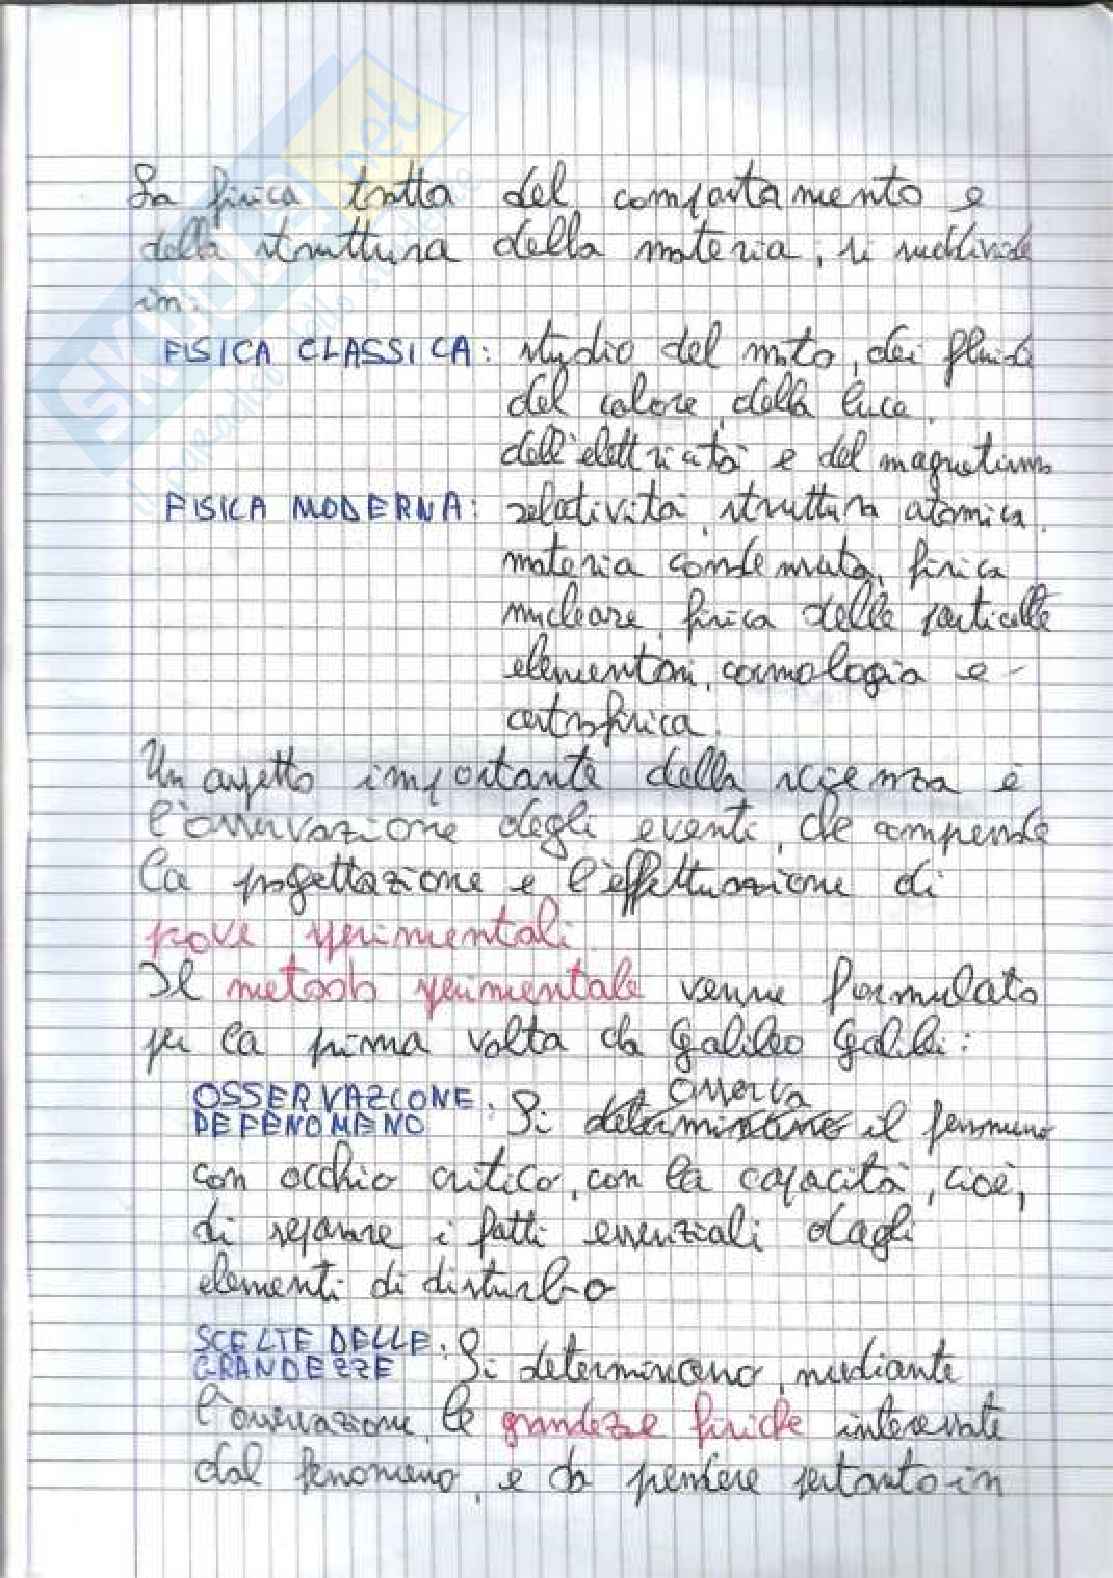 skuola.net
il paradiso dello studente
La fisica tratta del comportamento e
della struttura della materia, si suddivide
in:
FISICA CLASSICA: studio del moto, dei fluidi
del calore, della luce,
dell'elettricità e del magnetismo
FISICA MODERNA: relatività, struttura atomica,
materia condensata, fisica
nucleare, fisica delle particelle
elementari, cosmologia e
astrofisica.
Un aspetto importante della scienza è
l'osservazione degli eventi, che comprende
la progettazione e l'effettuazione di
prove sperimentali
Il metodo sperimentale venne formulato
per la prima volta da Galileo Galilei:
OSSERVAZIONE DEFENOMENO: Si osserva il fenomeno
con occhio critico, con la capacità, cioè,
di separare i fatti essenziali dagli
elementi di disturbo
SCELTE DELLE GRANDEZZE: Si determinano, mediante
l'osservazione, le grandezze fisiche interessate
dal fenomeno, e da prendere pertanto in